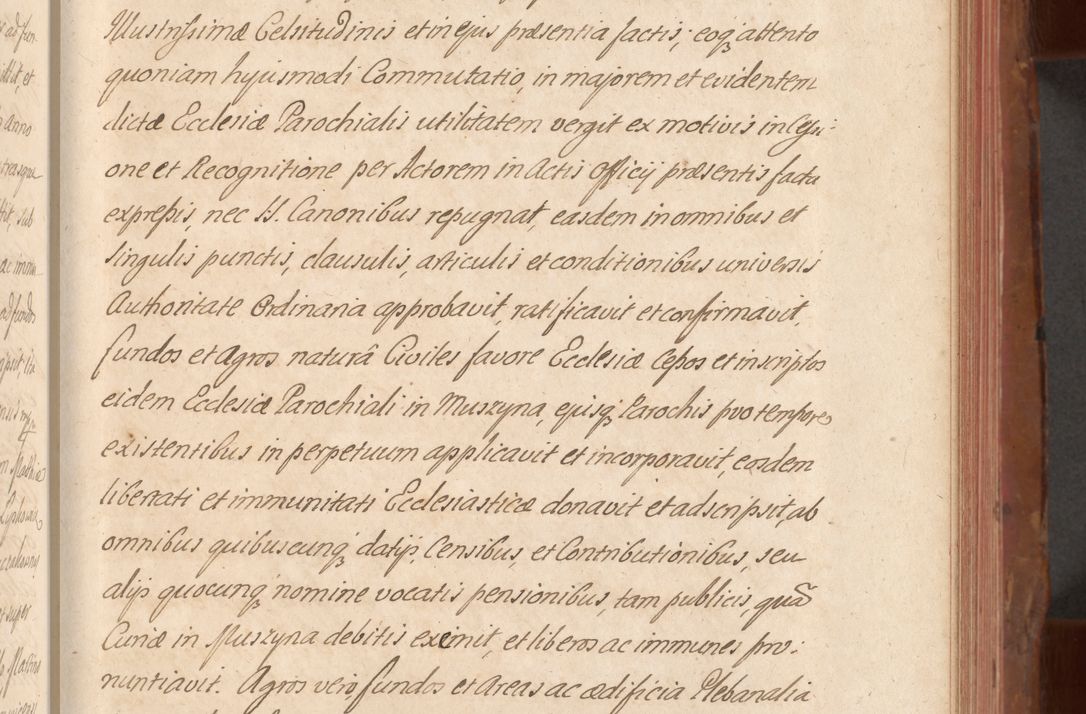 Illustrissimæ Celsitudinis et in ejus præsentia factis; eoq; attento
quoniam hujusmodi Commutatio, in majorem et evidentem
dictæ Ecclesiæ Parochialis utilitatem vergit ex motivis in Cessi-
one et Recognitione per Actorem in Actis Officij præsentis facta
expressis, nec SS. Canonibus repugnat, easdem in omnibus et
singulis punctis, clausulis, articulis et conditionibus universis
Authoritate Ordinaria approbavit, ratificavit et confirmavit,
fundos et Agros naturâ Civiles favore Ecclesiæ Cessos et inscriptos
eidem Ecclesiæ Parochiali in Muszyna, ejusq; Parochis pro tempore
existentibus in perpetuum applicavit et incorporavit, eosdem
libertati et immunitati Ecclesiasticæ donavit et adscripsit, ab
omnibus quibuscunq; datijs, Censibus, et Contributionibus, seu
alijs quocunq; nomine vocatis pensionibus, tam publicis quã
Curiæ in Muszyna debitis exemit, et liberos ac immunes pro-
nuntiavit. Agros vero fundos et Areas ac ædificia Plebanalia